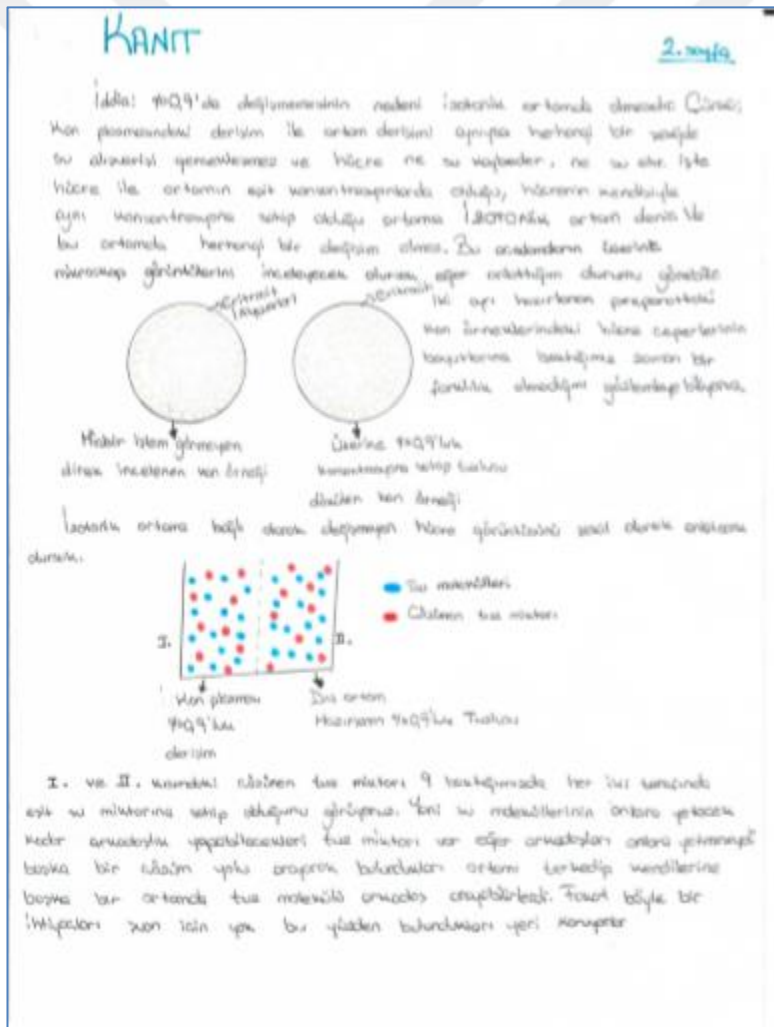 KANIT
2. sayfa
İddia: %0,9'da değişmemesinin nedeni izotonik ortamda olmasıdır. Çünkü;
Kan plazmasındaki derişim ile ortam derişimi aynıysa herhangi bir şekilde
su alışverişi gerçekleşmez ve hücre ne su kaybeder, ne su alır. İşte
hücre ile ortamın eşit konsantrasyonlarda olduğu, hücrenin kendisiyle
aynı konsantrasyona sahip olduğu ortama İZOTONİK ortam denir. Ve
bu ortamda herhangi bir değişim olmaz. Bu üzerine
mikroskop görüntülerini inceleyecek olursak eğer anlattığım durumu
Eritrosit
Eritrosit
İki ayrı hazırlanan preparattaki
kan örneklerindeki hücre çeperlerinin
boyutlarına baktığımız zaman bir
farklılık olmadığını
Hiçbir işlem görmeyen
direk incelenen kan örneği
Üzerine %0,9'luk
konsantrasyona sahip tuzlusu
dökülen kan örneği
İzotonik ortama bağlı olarak değişmeyen hücre görüntüsünü şekil olarak
olursak.
Su molekülleri
Çözünen tuz miktarı
I.
II.
Kan plazması
%0,9'luk
derişim
Dış ortam
Hazırlanan %0,9'luk Tuzlusu
I. ve II. kısımdaki çözünen tuz miktarı 9 baktığımızda her iki
eşit su miktarına sahip olduğunu görüyoruz. Yani su moleküllerinin onlara yetecek
kadar arkadaşlık yapabilecekleri tuz miktarı var eğer arkadaşları onlara yetmeseydi
başka bir çözüm yolu arayarak bulundukları ortamı terkedip kendilerine
başka bir ortamda tuz molekülü arkadaş arayabilirlerdi. Fakat böyle bir
ihtiyaçları için yok bu yüzden bulundukları yeri koruyorlar